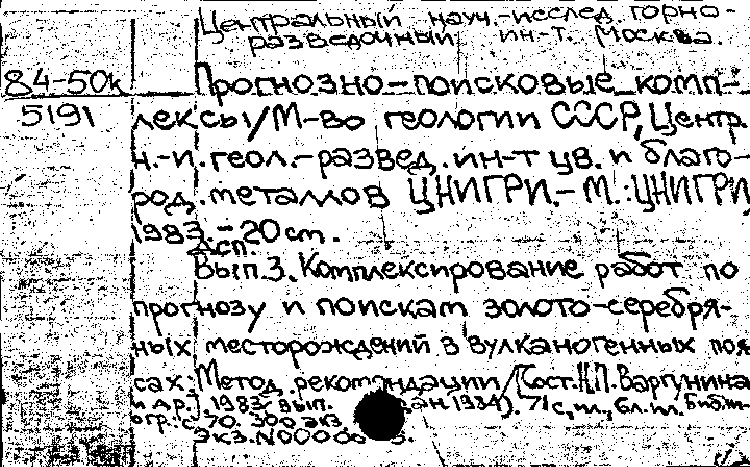 Центральный науч.-исслед. горно-
разведочный ин-т. Москва.
84-50к Прогнозно-поисковые комп-
5191 лексы/М-во геологии СССР, Центр.
н.-и. геол.-развед. ин-т цв. и благо-
род. металлов ЦНИГРИ.- М.: ЦНИГРИ
1983.- 20 cm.
Дсп.
Вып.3. Комплексирование работ по
прогнозу и поискам золото-серебря-
ных месторождений в вулканогенных поя
сах: Метод. рекомендации/(Сост. Н.П. Варгунина
и др.) 1983 вып. 1984). 71 с., ил., бл. ил. Библи-
огр.: с. 70. 300 экз.
Экз. N0000